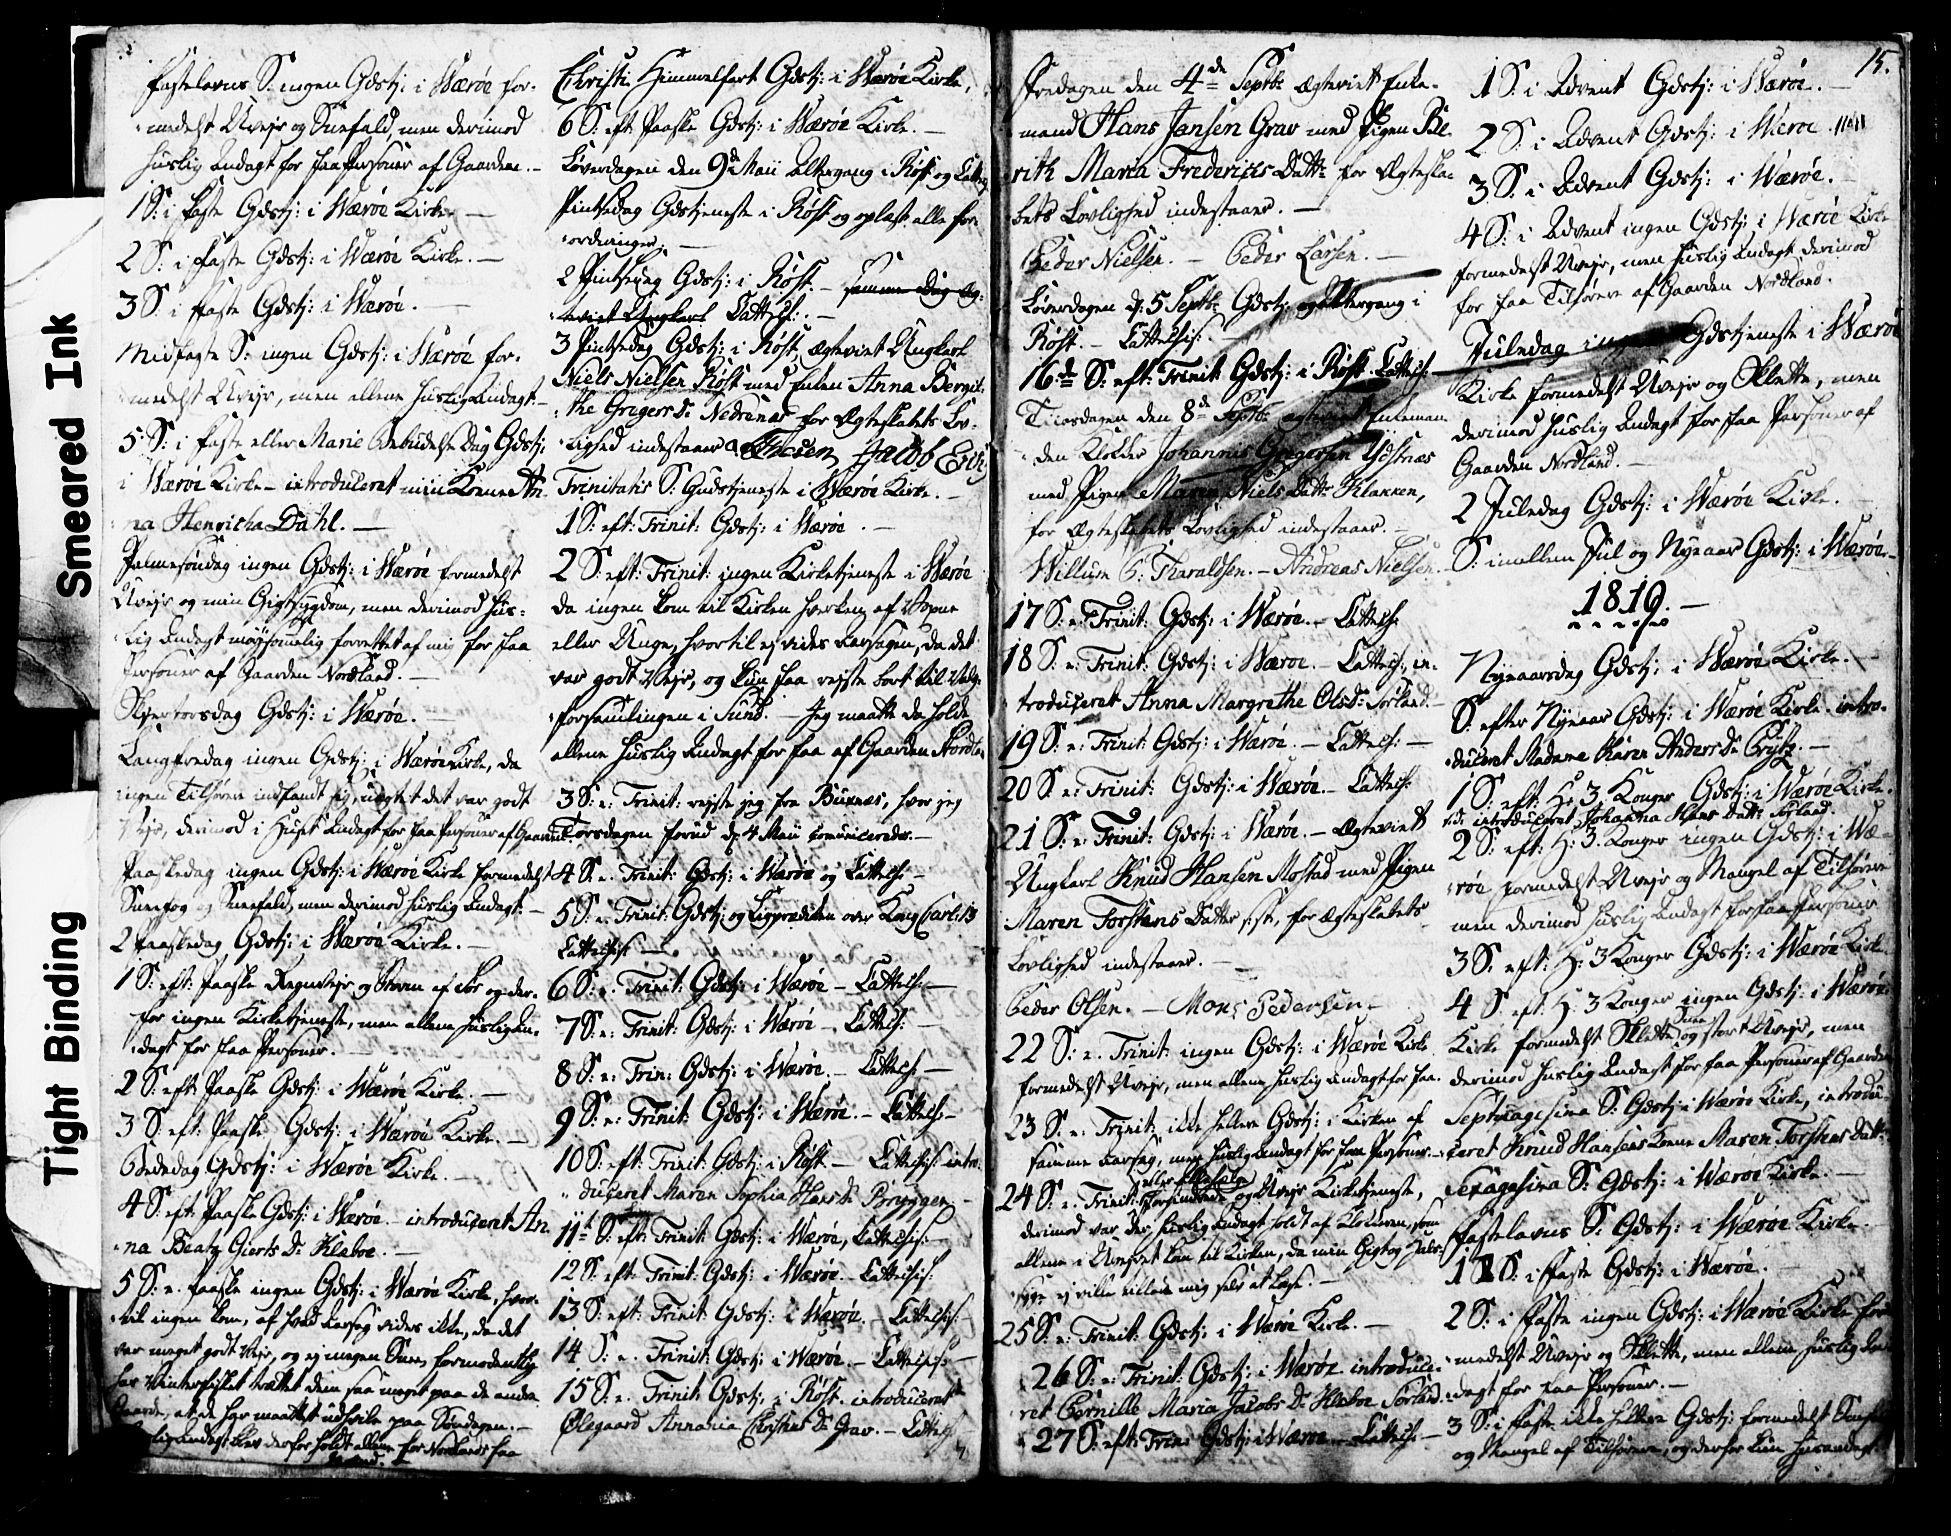 Smeared Ink
Tight Binding
Fastelavns S: ingen Gdstj: i Wærøe for-
medelst Uvejr og Sneefald, men derimod
huslig Andagt for faa Personer af Gaarden. —
1 S: i Faste Gdstj: i Wærøe Kirke. —
2 S: i Faste Gdstj: i Wærøe Kirke. —
3 S: i Faste Gdstj: i Wærøe. —
Midfaste S: ingen Gdstj: i Wærøe for-
medelst Uvejr, men allene huslig Andagt. —
5 S: i Faste eller Mariæ Bebudelse Dag Gdstj:
i Wærøe Kirke – introduceret min Kone An-
na Henricha Dahl. —
Palmesøndag ingen Gdstj: i Wærøe formedelst
Uvejr og min Gigtsygdom, men derimod hus-
lig Andagt møysommelig forrettet af mig for faa
Personer af Gaarden Nordland. —
Skjertorsdag Gdstj: i Wærøe. —
Langfredag ingen Gdstj: i Wærøe Kirke, da
ingen Tilhørere indfandt sig, uagtet det var godt
Vejr, derimod i Huset Andagt for faa Personer af Gaarden.
Paaskedag ingen Gdstj: i Wærøe Kirke formedelst
Sneefog og Sneefald, men derimod huslig Andagt. —
2 Paaskedag Gdstj: i Wærøe Kirke. —
1 S: eft: Paaske Regnvejr og Storm af og der-
for ingen Kirketjeneste, men allene huslig An-
dagt for faa Personer. —
2 S: eft: Paaske Gdstj: i Wærøe Kirke. —
3 S: eft: Paaske Gdstj: i Wærøe Kirke. —
Bededag Gdstj: i Wærøe Kirke. —
4 S: eft: Paaske Gdstj: i Wærøe. – introduceret An-
na Beata Gierts D: Kleboe. —
5 S: e: Paaske ingen Gdstj: i Wærøe Kirke, hvor-
til ingen kom, af hvad Aarsag vides ikke, da det
var meget godt Vejr, og ej megen Snee, formodentlig
har Vinterfisket trættet dem saa meget paa de andre
at de har maattet udhvile paa Søndagen. —
Andagt blev derfor holdt allene for Nordlands faa
Christi Himmelfart Gdstj: i Wærøe Kirke.
6 S: eft: Paaske Gdstj: i Wærøe Kirke. —
Løverdagen den 9d Maii Altergang i Røst og
Pintsedag Gdstjeneste i Røst og oplæst alle for-
ordninger. —
2 Pintsedag Gdstj: i Røst. – samme Dag æg-
teviet Ungkarl Cattech:. —
3 Pintsedag Gdstj: i Røst, ægteviet Ungkarl
Niels Nielsen Røst med Enken Anna Bergit-
the Gregers D: Nedrenæs for Ægteskabets Lov-
lighed indestaaer Thesen, Jacob
Trinitatis S: Gudstjeneste i Wærøe Kirke. —
1 S: eft: Trinit: Gdstj: i Wærøe. —
2 S: eft: Trinit: ingen Kirketjeneste i Wærøe
da ingen kom til Kirken hverken af Voxne
eller Unge, hvortil ej vides Aarsagen, da det
var godt Vejr, og kun faa rejste bort til Valg-
forsamlingen i Sund. – Jeg maatte da holde
allene huslig Andagt for faa af Gaarden Nordla
3 S: e: Trinit: rejste jeg fra Buxnæs, hvor jeg
Torsdagen forud d: 4 Maii communicerede. —
4 S: e: Trinit: Gdstj: i Wærøe og Cattech: –
5 S: e: Trinit: Gdstj: og Ligprædiken over Kong Carl: 13
Cattechs: —
6 S: e: Trinit: Gdstj: i Wærøe – Cattech: —
7 S: e: Trinit: Gdstj: i Wærøe – Cattech: —
8 S: e: Trin: Gdstj: i Wærøe. – Cattech: —
9 S: e: Trinit: Gdstj: i Wærøe. – Cattech –
10 S: eft: Trinit: Gdstj: i Røst – Cattechis: intro-
duceret Maren Sophia Hans D: Bryggen –
11te S: eft: Trinit: Gdstj: i Wærøe, Cattechis: –
12 S: eft: Trinit: Gdstj: i Wærøe – Cattechis:
13 S: eft: Trinit: Gdstj: i Wærøe. – Cattechis: –
14 S: e: Trinit: Gdstj: i Wærøe. – Cattechis: –
15 S: e: Trinit: Gdstj: i Røst. introduceret
Ølegaard Annania Christens D: Grav. – Cattech
15.
Fredagen den 4de Septbr ægteviet Enke-
mand Hans Jansen Grav med Pigen Bil-
rith Maria Fredericks Dattr for Ægteska-
bets Lovlighed indestaaer. —
Peder Nielsen. – Peder Larsen. —
Løverdagen d: 5 Septbr Gdstj: og Altergang i
Røst. – Cattechis: —
16de S: eft: Trinit: Gdstj: i Røst Cattech:
Tiirsdagen den 8de Septbr ægteviet Enkeman-
den Klokker Johannes Gregersen Ydstnæs
med Pigen Maren Niels Dattr Klakken,
for Ægteskabets Lovlighed indestaaer. —
Willum C: Tharaldsen. – Andreas Nielsen.
17 S: e: Trinit: Gdstj: i Wærøe. – Cattech:
18 S: e: Trinit: Gdstj: i Wærøe. – Cattech: in-
troduceret Anna Margrethe Ols D: Sørland. –
19 S: e: Trinit: Gdstj: i Wærøe. – Cattech: —
20 S: e: Trinit: Gdstj: i Wærøe. – Cattech:
21 S: e: Trinit: Gdstj: i Wærøe. – Ægteviet
Ungkarl Knud Hansen Mostad med Pigen
Maren Torstens Datter for Ægteskabets
Lovlighed indestaaer. —
Peder Olsen. – Mons Pedersen –
22 S: e: Trinit: ingen Gdstj: i Wærøe Kirke
formedelst Uvejr, men allene huslig Andagt for faa.
23 S: e: Trinit: ikke hellere Gdstj: i Kirken af
samme Aarsag, men huslig Andagt for faa Personer. —
24 S: e: Trinit: og Uvejr Kirketjeneste,
derimod var der huslig Andagt holdt af Klokkeren, som
allene i Uvejret kom til Kirken, da min Gigt og Hals-
syge ej vilde tillade mig selv at læse. —
25 S: e: Trinit: Gdstj: i Wærøe Kirke. —
26 S: e: Trinit: Gdstj: i Wærøe introduce-
ret Pernille Maria Jacobs D: Kleboe Sørland. –
27 S: eft: Trin: Gdstj: i Wærøe – Cattech: —
1 S: i Advent Gdstj: i Wærøe. —
2 S: i Advent Gdstj: i Wærøe.
3 S: i Advent Gdstj: i Wærøe. —
4 S: i Advent ingen Gdstj: i Wærøe Kirke
formedelst Uvejr, men huslig Andagt derimod
for faa Tilhørere af Gaarden Nordland.
Juledag ingen Gdstjeneste i Wærøe
Kirke formedelst Uvejr og Slette, men
derimod huslig Andagt for faa Personer af
Gaarden Nordland. —
2 Juledag Gdstj: i Wærøe Kirke. —
S: imellem Jul og Nyeaar Gdstj: i Wærøe –
1819. —
Nyeaarsdag Gdstj: i Wærøe Kirke. —
S: efter Nyeaar Gdstj: i Wærøe Kirke. intro-
duceret Madame Karen Anders D: —
1 S: eft: H: 3 Konger Gdstj: i Wærøe Kirke.
introduceret Johanna Hans Dattr Sørland.
2 S: eft: H: 3 Konger ingen Gdstj: i Wæ-
røe formedelst Uvejr og Mangel af Tilhørere
men derimod huslig Andagt for faa Personer
3 S: eft: H: 3 Konger Gdstj: i Wærøe Kirk
4 S: eft: H: 3 Konger ingen Gdstj: i Wærøe
Kirke formedelst Slette, Snee og stort Uvejr, men
derimod huslig Andagt for faa Personer af Gaarden
Septuagesima S: Gdstj: i Wærøe Kirke, introdu-
ceret Knud Hansens Kone Maren Torstens Datt:
Sexagesima S: Gdstj: i Wærøe Kirke. —
Fastelavns S: Gdstj: i Wærøe Kirke.
1 S: i Faste Gdstj: i Wærøe. —
2 S: i Faste ingen Gdstj: i Wærøe Kirke for-
medelst Uvejr og Slette, men allene huslig An-
dagt for faa Personer. —
3 S: i Faste ikke hellere Gdstj: formedelst
og Mangel af Tilhørere, og derfor kun husandagt.